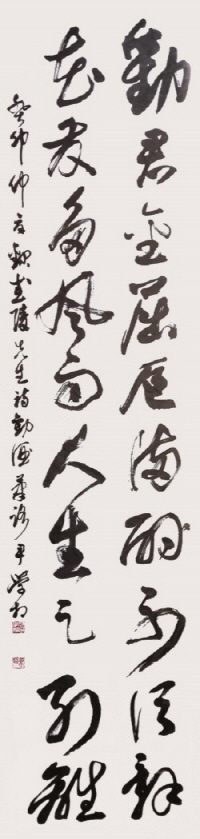 勸君金屈卮滿酌不須辭
花發多風雨人生足別離
癸卯仲夏錄武陵先生詩勸酒